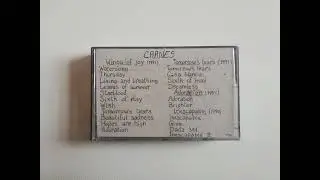 CRANES
Wings of joy (1991)
Watersong
Thursday
Living and breathing
Leaves of summer
Starblood
Sixth of may
Wish
Tomorrow's tears
Beautiful sadness
Hopes are high
Adoration
Tomorrow's tears (1991)
Tomorrow's tears
Casa blanca
Sixth of may
Dreamless
Adoration (1991)
Adoration
Brighter
Inescapable (1990)
Inescapable
Give
Dada 331
Inescapable II